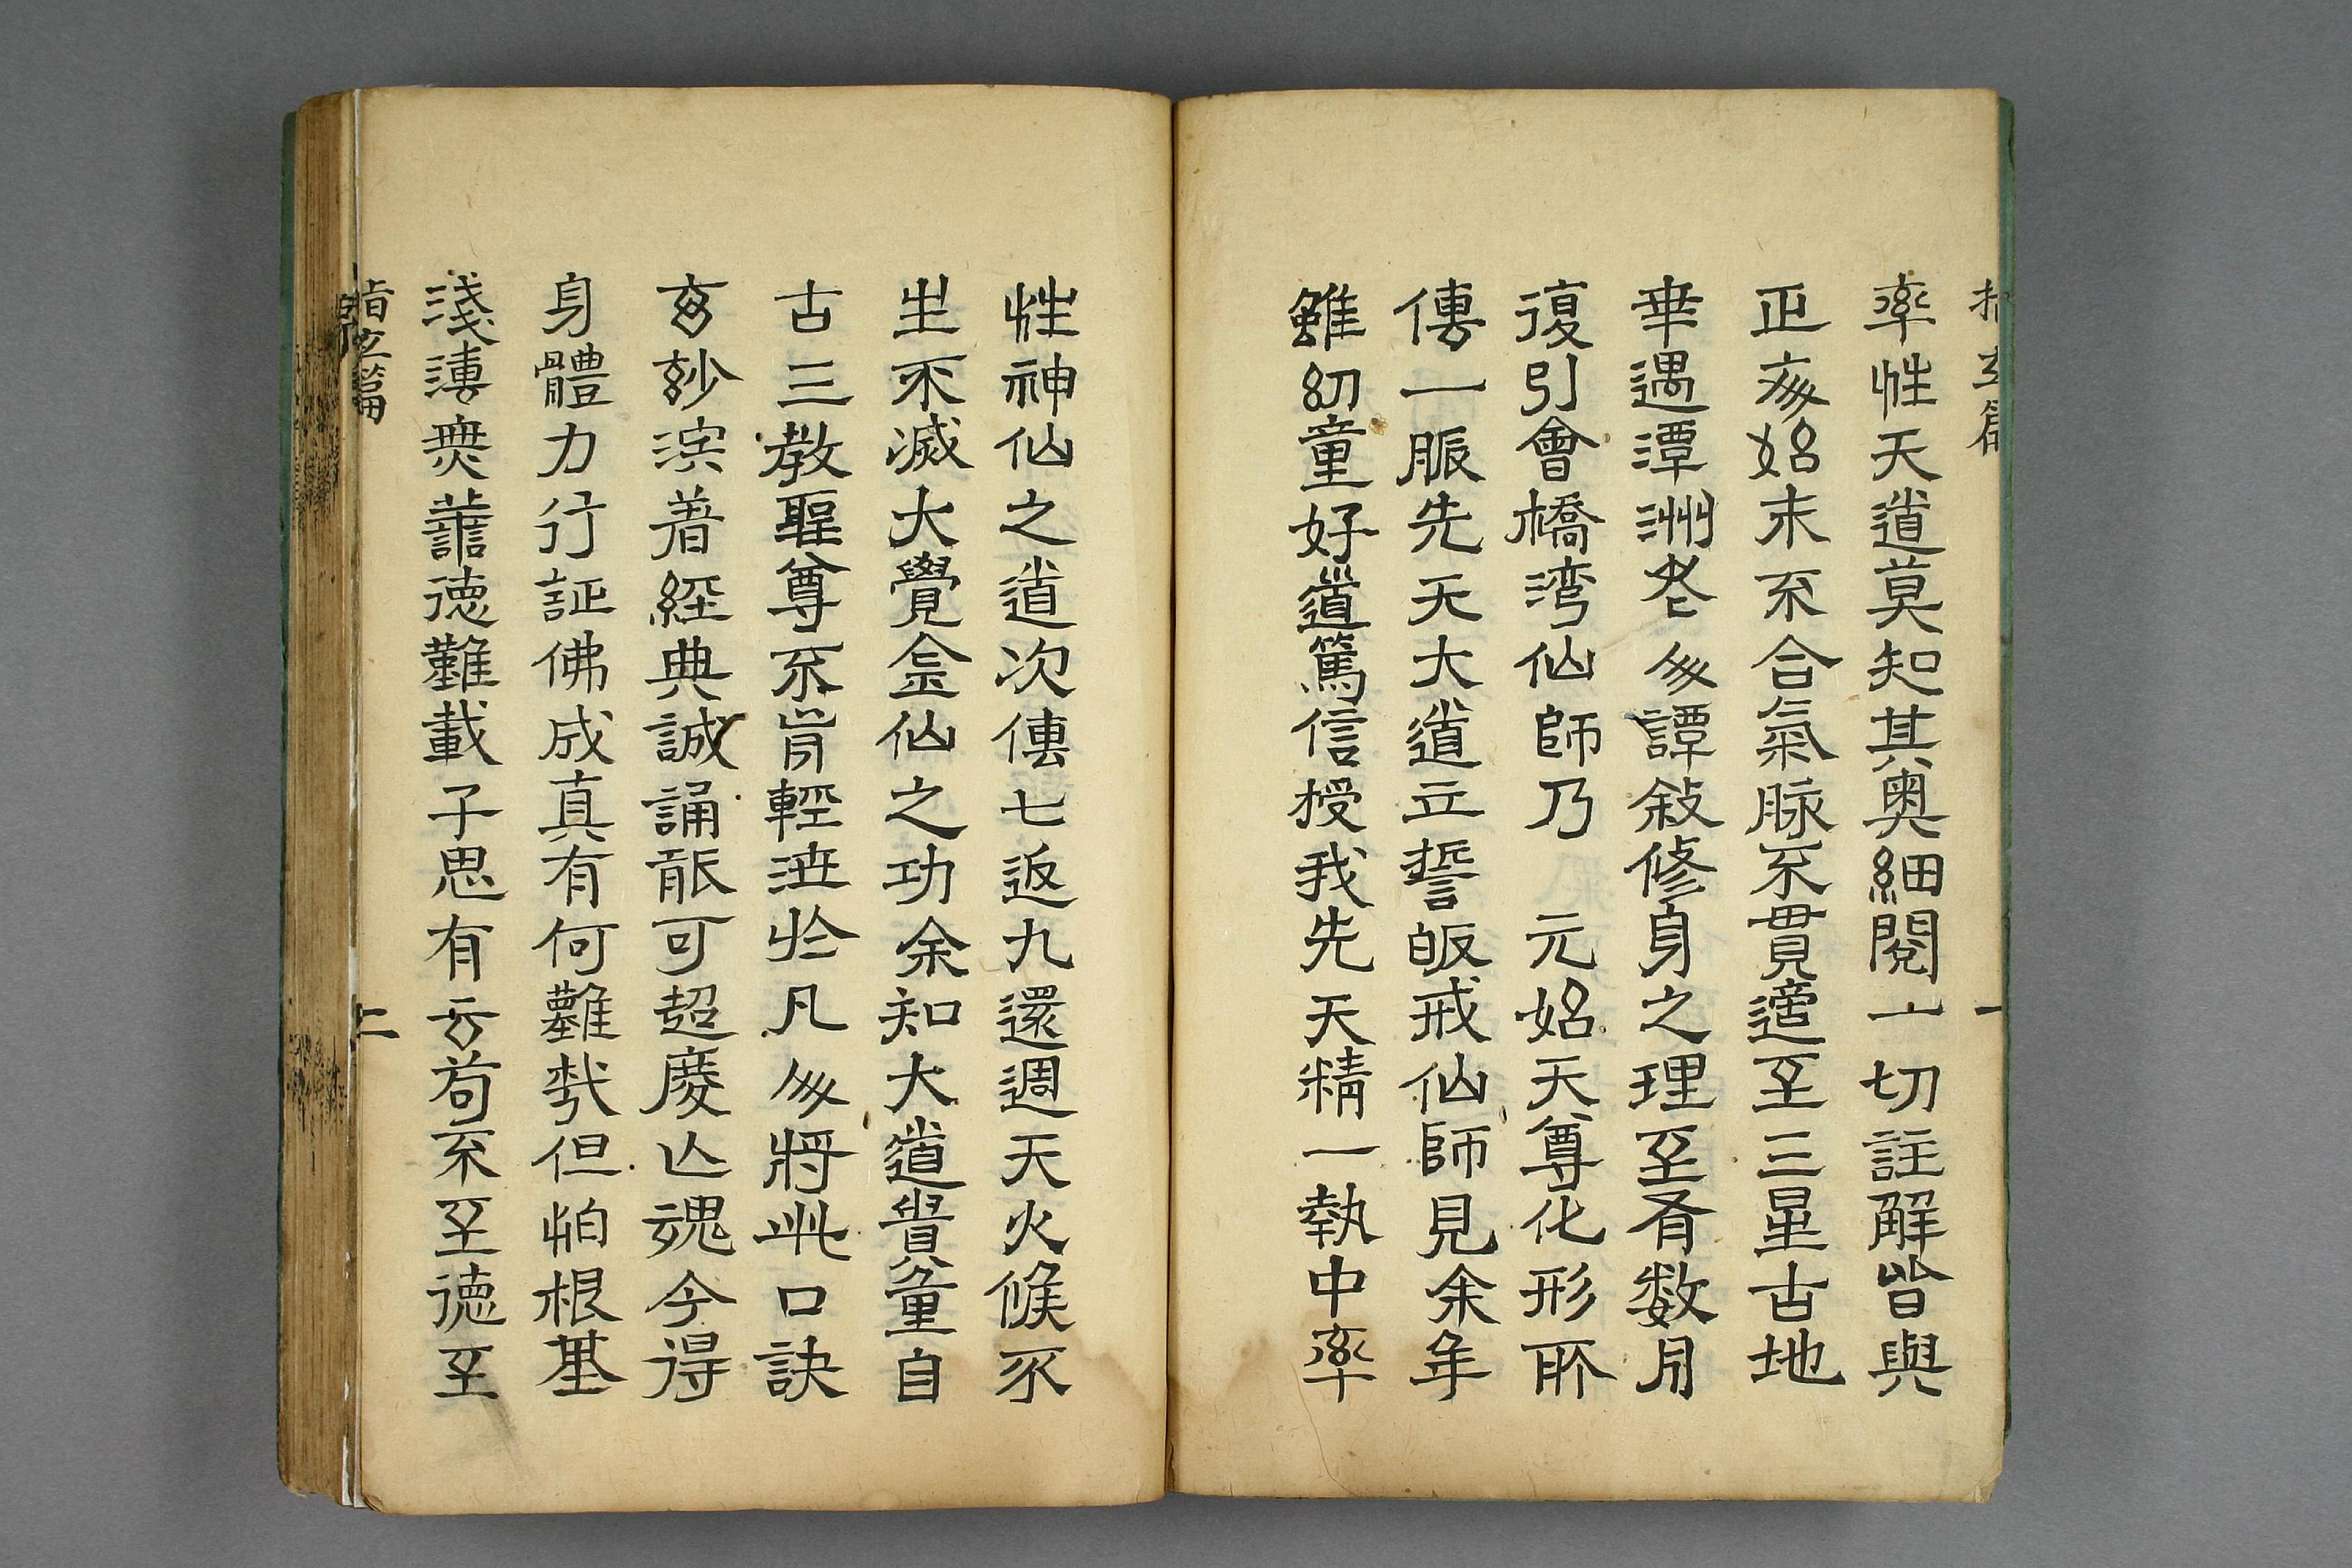 指玄篇
一
率性天道莫知其奥細閱一切註解皆與
正交始末不合氣脉不貫適至三星古地
華遇潭洲老人譚敍修身之理至有数月
復引會橋湾仙師乃 元始天尊化形所
傳一脈先天大道立誓皈戒仙師見余年
雖幼童好道篤信授我先天精一執中率
性神仙之道次傳七返九還週天火候不
生不滅大覺金仙之功余知大道貴重自
古三教聖尊不肯輕泄於凡人將此口訣
玄妙深着經典誠誦能可超慶亡魂今得
身體力行証佛成真有何難哉但怕根基
淺薄無譱德難載子思有云苟不至德至
指玄篇
二